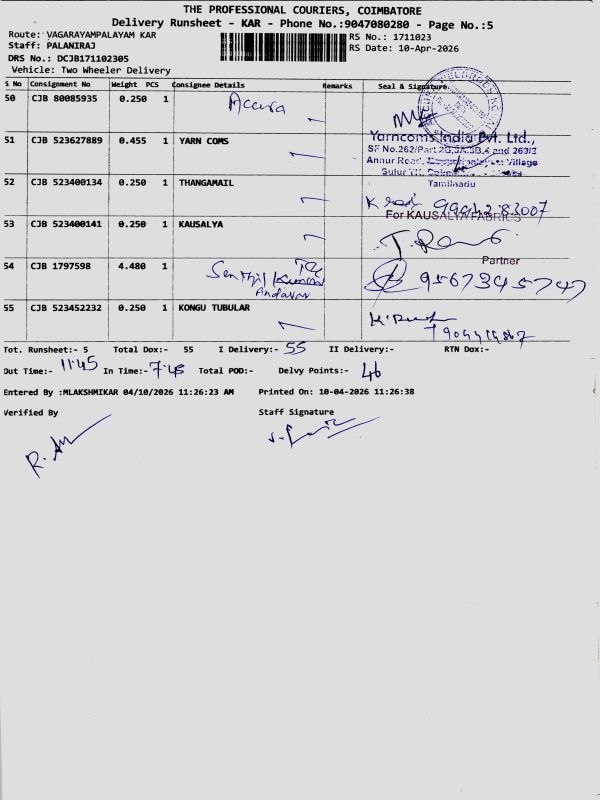 THE PROFESSIONAL COURIERS, COIMBATORE
Delivery Runsheet - KAR - Phone No.:9047080280 - Page No.:5
Route: VAGARAYAMPALAYAM KAR
RS No.: 1711023
Staff: PALANIRAJ
RS Date: 10-Apr-2026
DRS No.: DCJB171102305
Vehicle: Two Wheeler Delivery
S No Consignment No Weight PCS Consignee Details Remarks Seal & Signature
50 CJB 80085935 0.250 1 Accura
51 CJB 523627889 0.455 1 YARN COMS
Yarncoms India Pvt. Ltd.,
SF No.262/Part 2B,3A,3B,4 and 263/2
Annur Road, Village
Sulur
52 CJB 523400134 0.250 1 THANGAMAIL
Tamilnadu
53 CJB 523400141 0.250 1 KAUSALYA
For KAUSALYA FABRICS
Partner
54 CJB 1797598 4.480 1 Senthil Kumar
Andavar
9567345747
55 CJB 523452232 0.250 1 KONGU TUBULAR
Tot. Runsheet:- 5 Total Dox:- 55 I Delivery:- 55 II Delivery:- RTN Dox:-
Out Time:- 11:45 In Time:- 7:45 Total POD:- Delvy Points:- 46
Entered By :MLAKSHMIKAR 04/10/2026 11:26:23 AM Printed On: 10-04-2026 11:26:38
Verified By Staff Signature